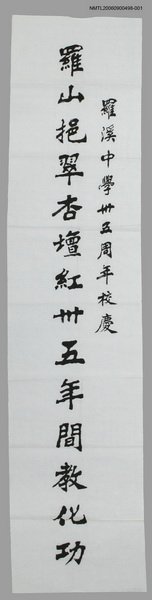 NMTL20060900498-001
羅溪中學卅五周年校慶
羅山挹翠杏壇紅卅五年間教化功